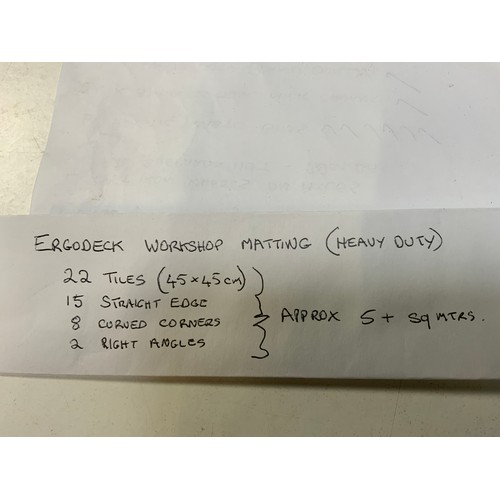 ERGODECK WORKSHOP MATTING (HEAVY DUTY)
22 TILES (45×45cm)
15 STRAIGHT EDGE
8 CURVED CORNERS
2 RIGHT ANGLES
APPROX 5+ SQ MTRS.